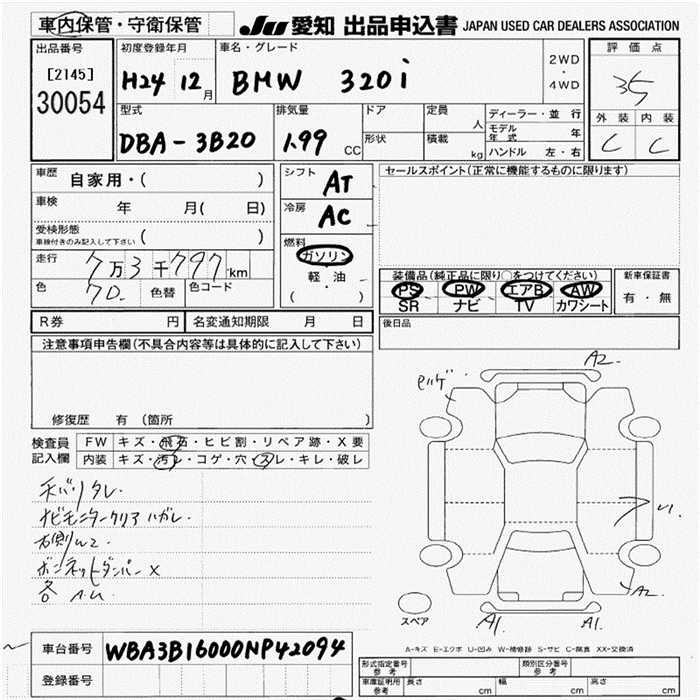 車内保管・守衛保管
JU 愛知 出品申込書 JAPAN USED CAR DEALERS ASSOCIATION
出品番号
[2145]
30054
初度登録年月
H24 12月
車名・グレード
BMW 320i
2WD
・
4WD
評価点
35
外装 内装
C C
型式
DBA-3B20
排気量
1.99 CC
ドア
形状
定員 人
積載 kg
ディーラー・並行
モデル年式 年
ハンドル 左・右
車歴 自家用・( )
車検 年 月( 日)
受検形態
車検付きのみ記入して下さい ( )
走行 7万3千797km
色 色替 色コード
シフト AT
冷房 AC
燃料
ガソリン
軽・油
( )
セールスポイント(正常に機能するものに限ります)
装備品(純正品に限り○をつけてください)
PS PW エアB AW
SR ナビ TV カワシート
新車保証書
有・無
R券 円 名変通知期限 月 日
後日品
注意事項申告欄(不具合内容等は具体的に記入して下さい)
修復歴 有 (箇所 )
検査員
記入欄
FW キズ・飛石・ヒビ割・リペア跡・X要
内装 キズ・汚レ・コゲ・穴・スレ・キレ・破レ
ボンネットダンパー×
各
A2
A2
A1
A1
スペア
A-キズ E-エクボ U-凹み W-補修跡 S-サビ C-腐食 XX-交換済
車台番号 WBA3B16000NP42094
登録番号
形式指定番号
参考
類別区分番号
参考
車庫証明用
参考
長さ cm 幅 cm 高さ cm